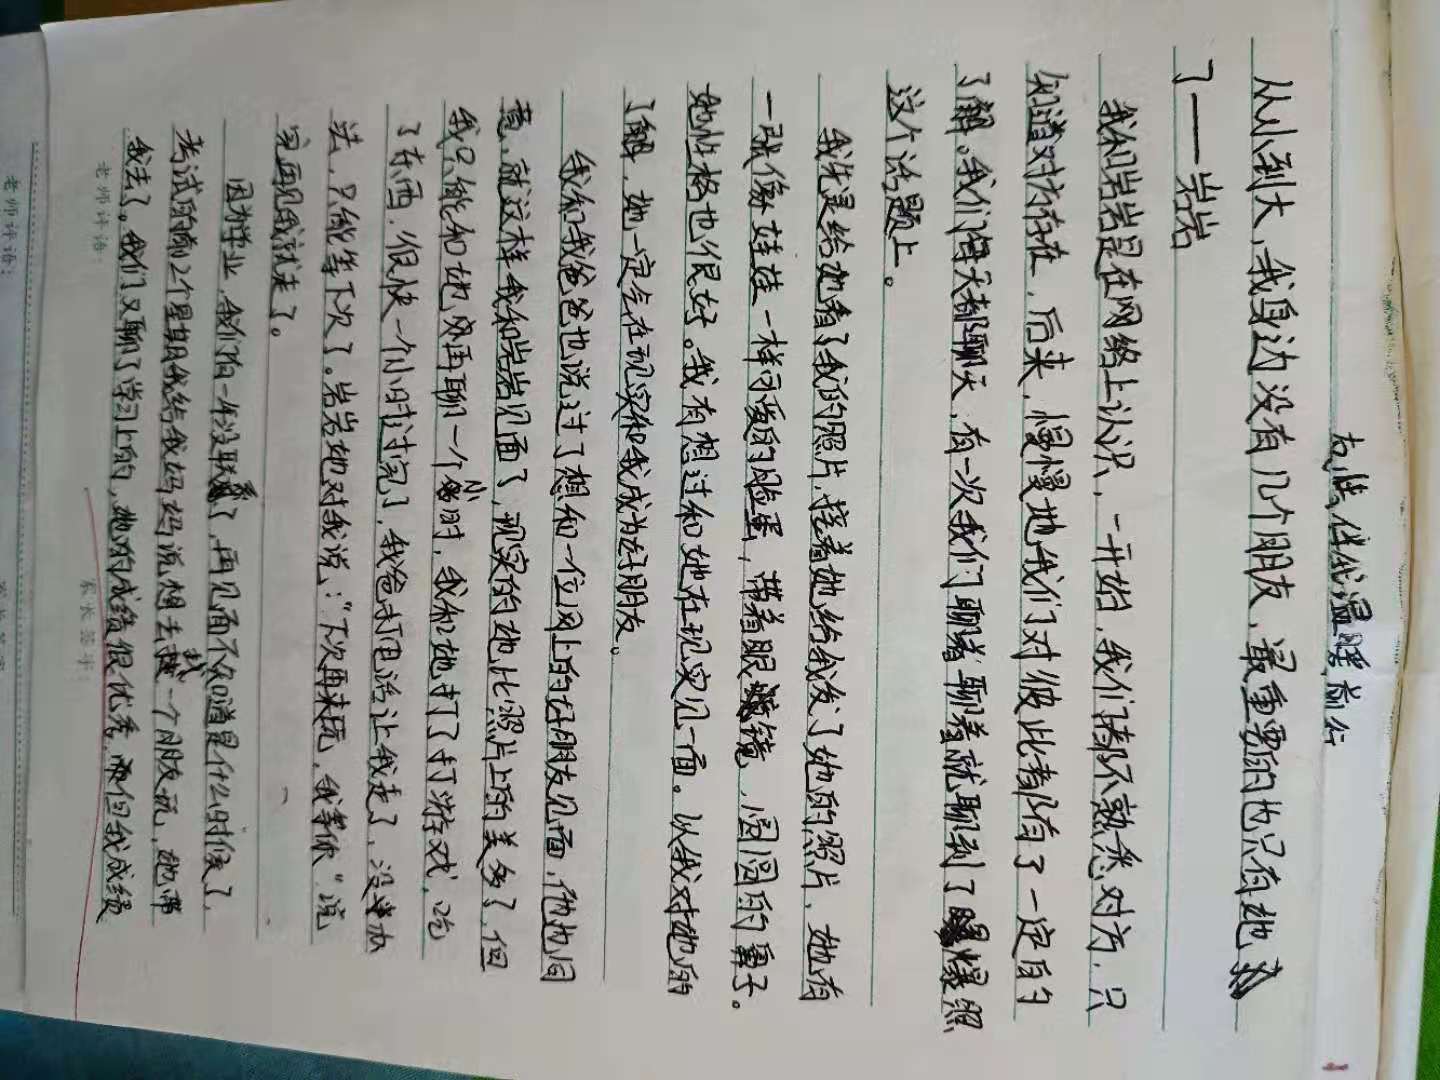 友谊，伴我温暖前行
从小到大，我身边没有几个朋友，最重要的也只有她
了——岩岩
我和岩岩是在网络上认识，一开始，我们都不熟悉对方，只
知道对方存在，后来，慢慢地我们对彼此都有了一定的
了解。我们每天都聊天，有一次我们聊着聊着就聊到了爆照
这个话题上。
我先是给她看了我的照片，接着她给我发了她的照片，她有
一张像娃娃一样可爱的脸蛋，带着眼镜，圆圆的鼻子。
她性格也很好。我有想过和她在现实见一面。以我对她的
了解，她一定会在现实和我成为好朋友。
我和我爸爸也说过了想和一位网上的好朋友见面，他也同
意，就这样我和岩岩见面了，现实的她比照片上的美多了，但
我只能和她再聊一个小时，我和她打了打游戏，吃
了东西，很快一个小时过完了，我爸打电话让我走了，没办
法，只能等下次了。岩岩她对我说：“下次再来玩，我等你”说
完再见我就走了。
因为学业，我们有一年没联系了，再见面不知道是什么时候了，
考试的前2个星期我给我妈妈说想去找一个朋友玩，她带
我去了。我们又聊了学习上的，她的成绩很优秀，但我成绩
老师评语：
家长签字：
老师评语：